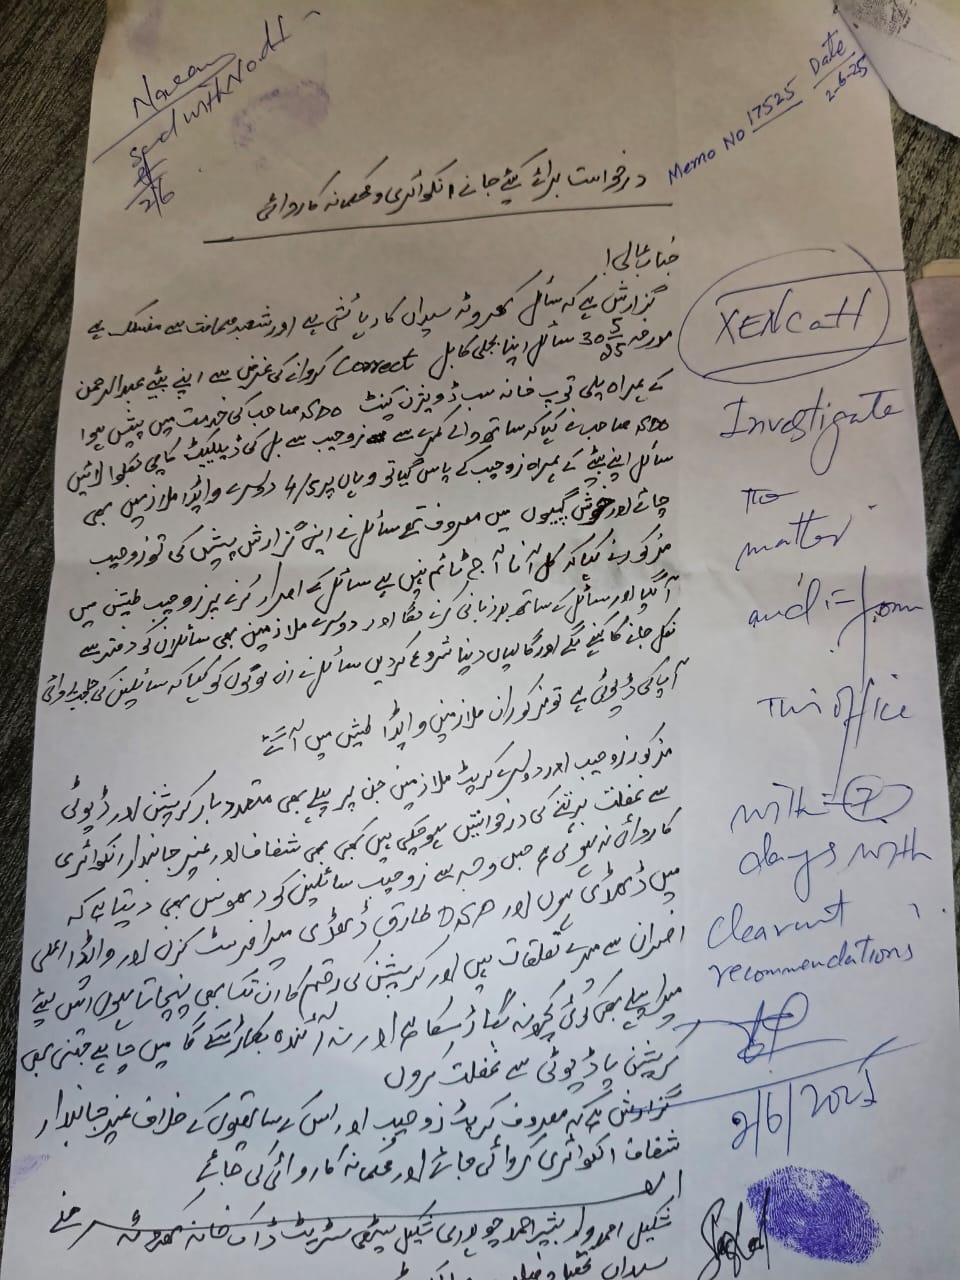 Memo No 17525 Date
2-6-25
2/6
درخواست برائے کیئے جانے انکوائری و محکمانہ کاروائی
جناب عالی!
گزارش ہے کہ سائل کھروٹہ سیداں کا رہائشی ہے اور شعبہ صحافت سے منسلک ہے
مورخہ 30 5/25 سائل اپنا بجلی کا بل Correct کروانے کی غرض سے اپنے بیٹے عبدالرحمن
کے ہمراہ پلی توپ خانہ سب ڈویژن کینٹ SDO صاحب کی خدمت میں پیش ہوا
SDO صاحب نے کہا کہ ساتھ والے کمرے سے زوہیب سے بل کی ڈپلیکیٹ کاپی نکلوا لائیں
سائل اپنے بیٹے کے ہمراہ زوہیب کے پاس گیا تو وہاں پر 3/4 دوسرے واپڈا ملازمین بھی
چائے اور خوش گپیوں میں مصروف تھے سائل نے اپنی گزارش پیش کی تو زوہیب
مذکور نے کہا کہ کل آنا آج ٹائم نہیں ہے سائل کے اصرار کرنے پر زوہیب طیش میں
آ گیا اور سائل کے ساتھ بدزبانی کرنے لگا اور دوسرے ملازمین بھی سائلان کی دفتر سے
نکل جانے کا کہنے لگے اور گالیاں دینا شروع کر دیں سائل نے ان لوگوں کو کہا کہ سائلین کی
آپ کی ڈیوٹی ہے تو مذکوران ملازمین واپڈا طیش میں آ گئے
مذکور زوہیب اور دوسرے کرپٹ ملازمین جن پر پہلے بھی متعدد بار کرپشن اور ڈیوٹی
سے غفلت برتنے کی درخواستیں ہو چکی ہیں کبھی بھی شفاف اور غیر جانبدار انکوائری
کاروائی نہ ہوئی ہے جس وجہ سے زوہیب سائلین کو دھونس بھی دیتا ہے کہ
میں ڈھلڑی ہوں اور DSP طارق ڈھلڑی میرا فرسٹ کزن اور واپڈا اعلی
افسران سے میرے تعلقات ہیں اور کرپشن کی رقم کا ان تک بھی پہنچاتا ہوں اس لیئے
میرا پہلے بھی کوئی کچھ نہ بگاڑ سکا ہے اور نہ آئندہ بگاڑ سکے گا میں چاہے جتنی بھی
کرپشن یا ڈیوٹی سے غفلت کروں
گزارش ہے کہ معروف کرپٹ زوہیب اور اس کے ساتھیوں کے خلاف غیر جانبدار
شفاف انکوائری کروائی جائے اور محکمانہ کاروائی کی جائے
شکیل احمد ولد بشیر احمد چوہدری شکیل سٹریٹ ڈاک خانہ کھروٹہ
سیداں
XEN Cantt
Investigate
The
matter
and inform
This office
within 7
days with
clearcut
recommendations
2/6/2025